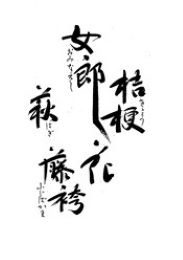 桔梗
ききょう
女郎花
おみなえし
萩
はぎ
藤袴
ふじばかま